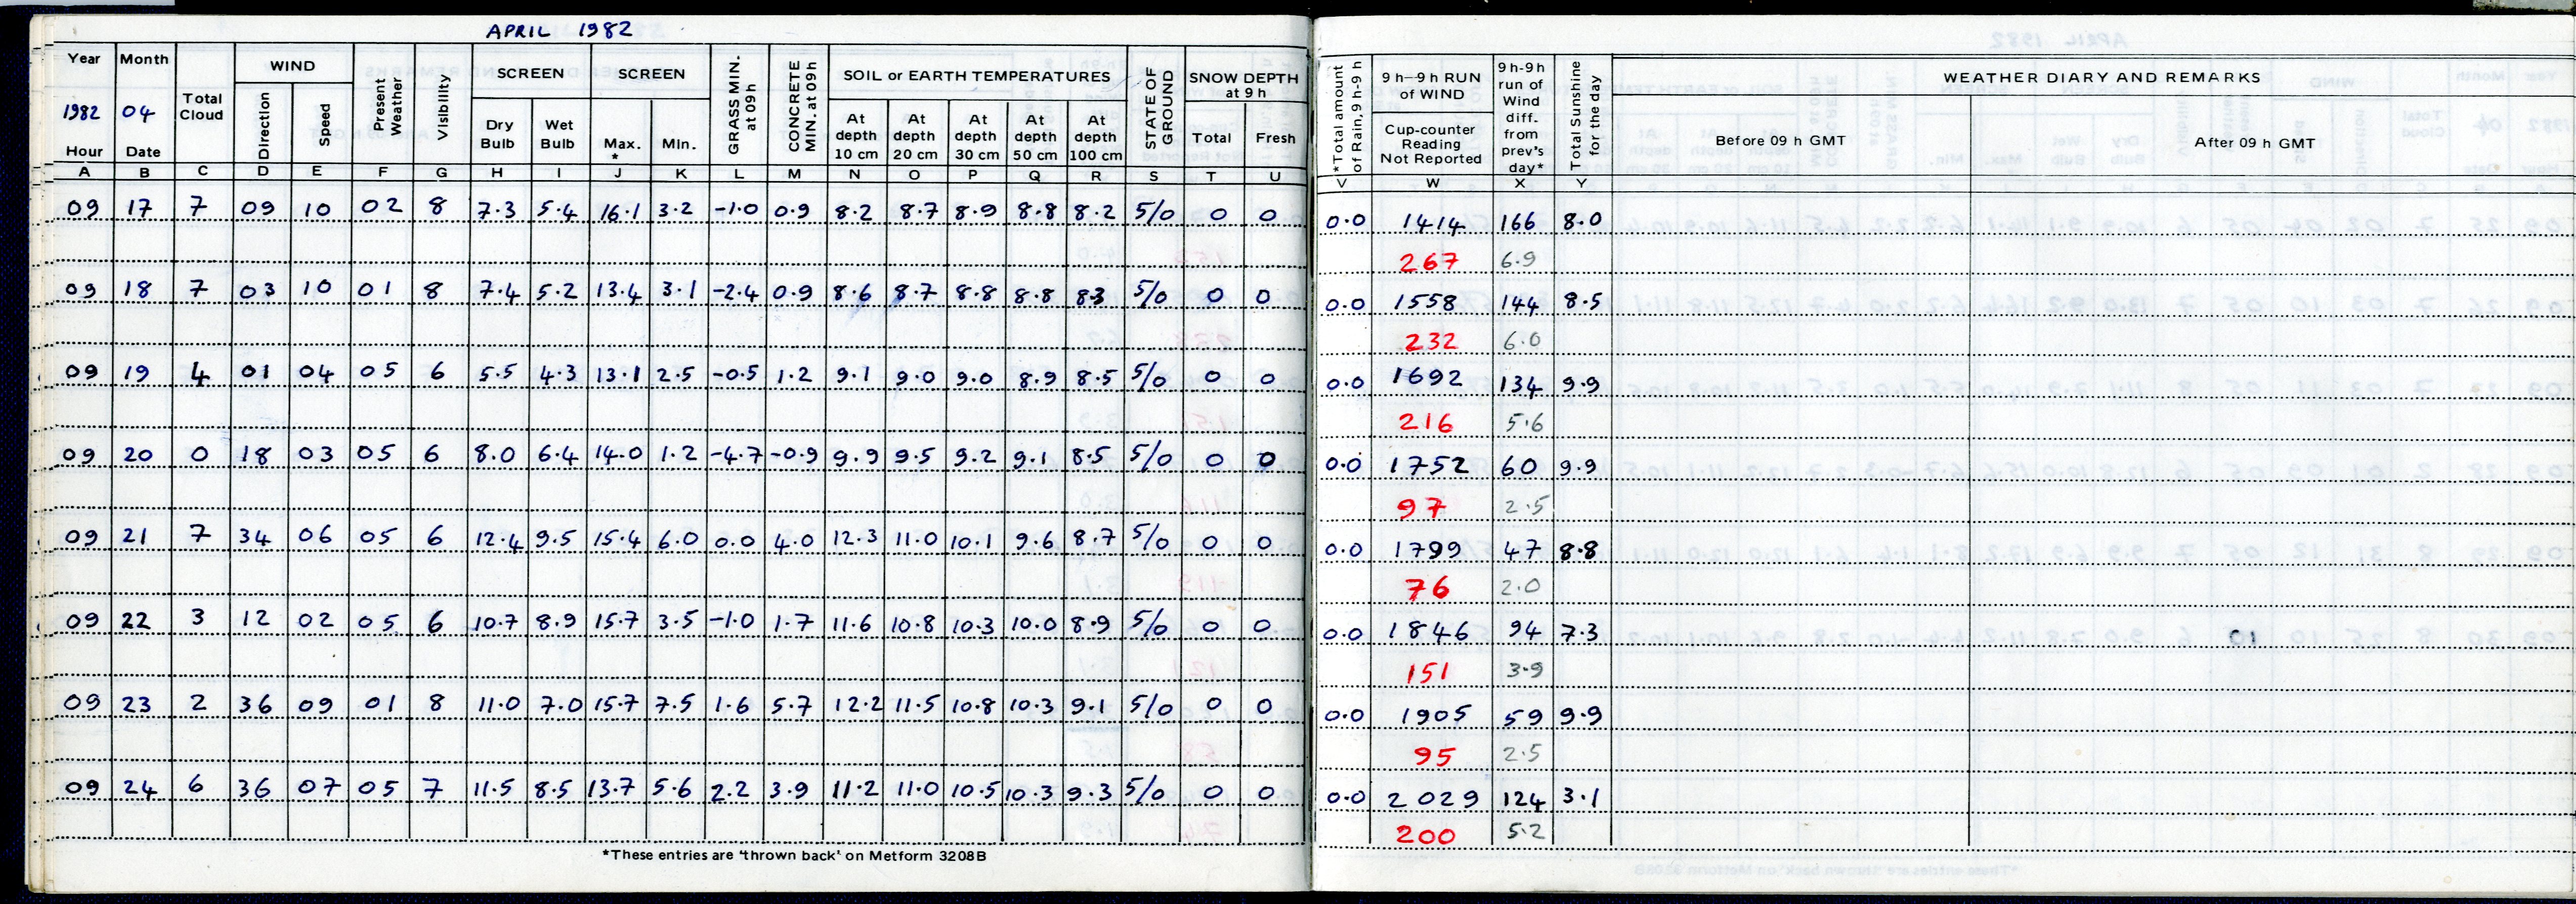 APRIL 1982
Year Month Total Cloud WIND Present Weather Visibility SCREEN SCREEN GRASS MIN. at 09h CONCRETE MIN. at 09h SOIL or EARTH TEMPERATURES STATE OF GROUND SNOW DEPTH at 9 h *Total amount of Rain, 9 h-9 h 9 h—9 h RUN of WIND 9 h-9 h run of Wind diff. from prev's day* Total Sunshine for the day WEATHER DIARY AND REMARKS
1982 04 Direction Speed Dry Bulb Wet Bulb Max. * Min. At depth 10 cm At depth 20 cm At depth 30 cm At depth 50 cm At depth 100 cm Total Fresh Cup-counter Reading Not Reported Before 09 h GMT After 09 h GMT
Hour Date
A B C D E F G H I J K L M N O P Q R S T U V W X Y
09 17 7 09 10 02 8 7.3 5.4 16.1 3.2 -1.0 0.9 8.2 8.7 8.9 8.8 8.2 5/0 0 0 0.0 1414 166 8.0
267 6.9
09 18 7 03 10 01 8 7.4 5.2 13.4 3.1 -2.4 0.9 8.6 8.7 8.8 8.8 8.3 5/0 0 0 0.0 1558 144 8.5
232 6.0
09 19 4 01 04 05 6 5.5 4.3 13.1 2.5 -0.5 1.2 9.1 9.0 9.0 8.9 8.5 5/0 0 0 0.0 1692 134 9.9
216 5.6
09 20 0 18 03 05 6 8.0 6.4 14.0 1.2 -4.7 -0.9 9.9 9.5 9.2 9.1 8.5 5/0 0 0 0.0 1752 60 9.9
97 2.5
09 21 7 34 06 05 6 12.4 9.5 15.4 6.0 0.0 4.0 12.3 11.0 10.1 9.6 8.7 5/0 0 0 0.0 1799 47 8.8
76 2.0
09 22 3 12 02 05 6 10.7 8.9 15.7 3.5 -1.0 1.7 11.6 10.8 10.3 10.0 8.9 5/0 0 0 0.0 1846 94 7.3
151 3.9
09 23 2 36 09 01 8 11.0 7.0 15.7 7.5 1.6 5.7 12.2 11.5 10.8 10.3 9.1 5/0 0 0 0.0 1905 59 9.9
95 2.5
09 24 6 36 07 05 7 11.5 8.5 13.7 5.6 2.2 3.9 11.2 11.0 10.5 10.3 9.3 5/0 0 0 0.0 2029 124 3.1
200 5.2
*These entries are 'thrown back' on Metform 3208B